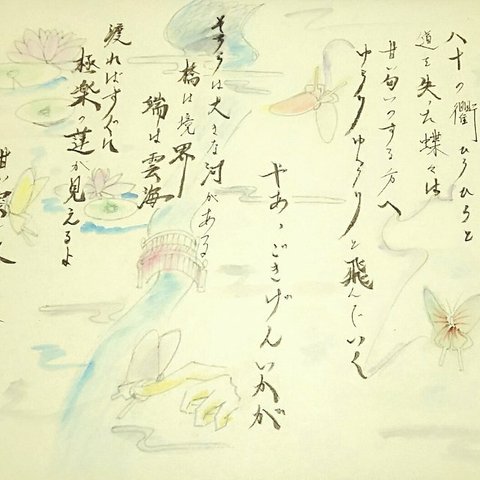 八十の衢ひらひらと
道を失った蝶々は
甘い匂いのする方へ
ゆらりゆらりと飛んでいく
やあ、ごきげんいかが
そちらは大きな河がある
橋は境界
端は雲海
渡ればすぐに
極楽の蓮が見えるよ
甘い